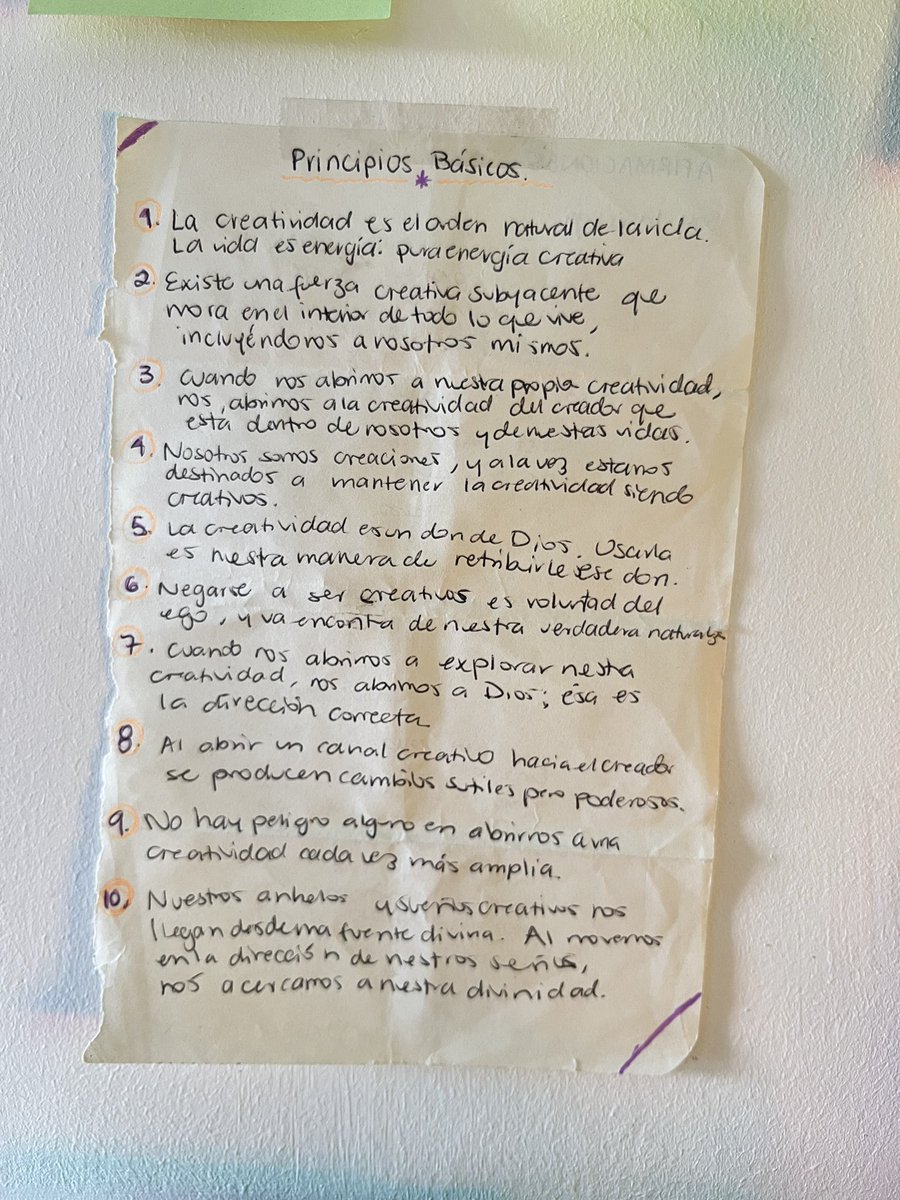 Principios Básicos.
1. La creatividad es el orden natural de la vida.
La vida es energía: pura energía creativa
2. Existe una fuerza creativa subyacente que
mora en el interior de todo lo que vive,
incluyéndonos a nosotros mismos.
3. Cuando nos abrimos a nuestra propia creatividad,
nos, abrimos a la creatividad del creador que
está dentro de nosotros y de nuestras vidas.
4. Nosotros somos creaciones, y a la vez estamos
destinados a mantener la creatividad siendo
creativos.
5. La creatividad es un don de Dios. Usarla
es nuestra manera de retribuirle ese don.
6. Negarse a ser creativos es voluntad del
ego, y va en contra de nuestra verdadera naturaleza
7. Cuando nos abrimos a explorar nuestra
creatividad, nos abrimos a Dios; ésa es
la dirección correcta
8. Al abrir un canal creativo hacia el creador
se producen cambios sutiles pero poderosos.
9. No hay peligro alguno en abrirnos a una
creatividad cada vez más amplia.
10. Nuestros anhelos y sueños creativos nos
llegan desde una fuente divina. Al movernos
en la dirección de nuestros sueños,
nos acercamos a nuestra divinidad.